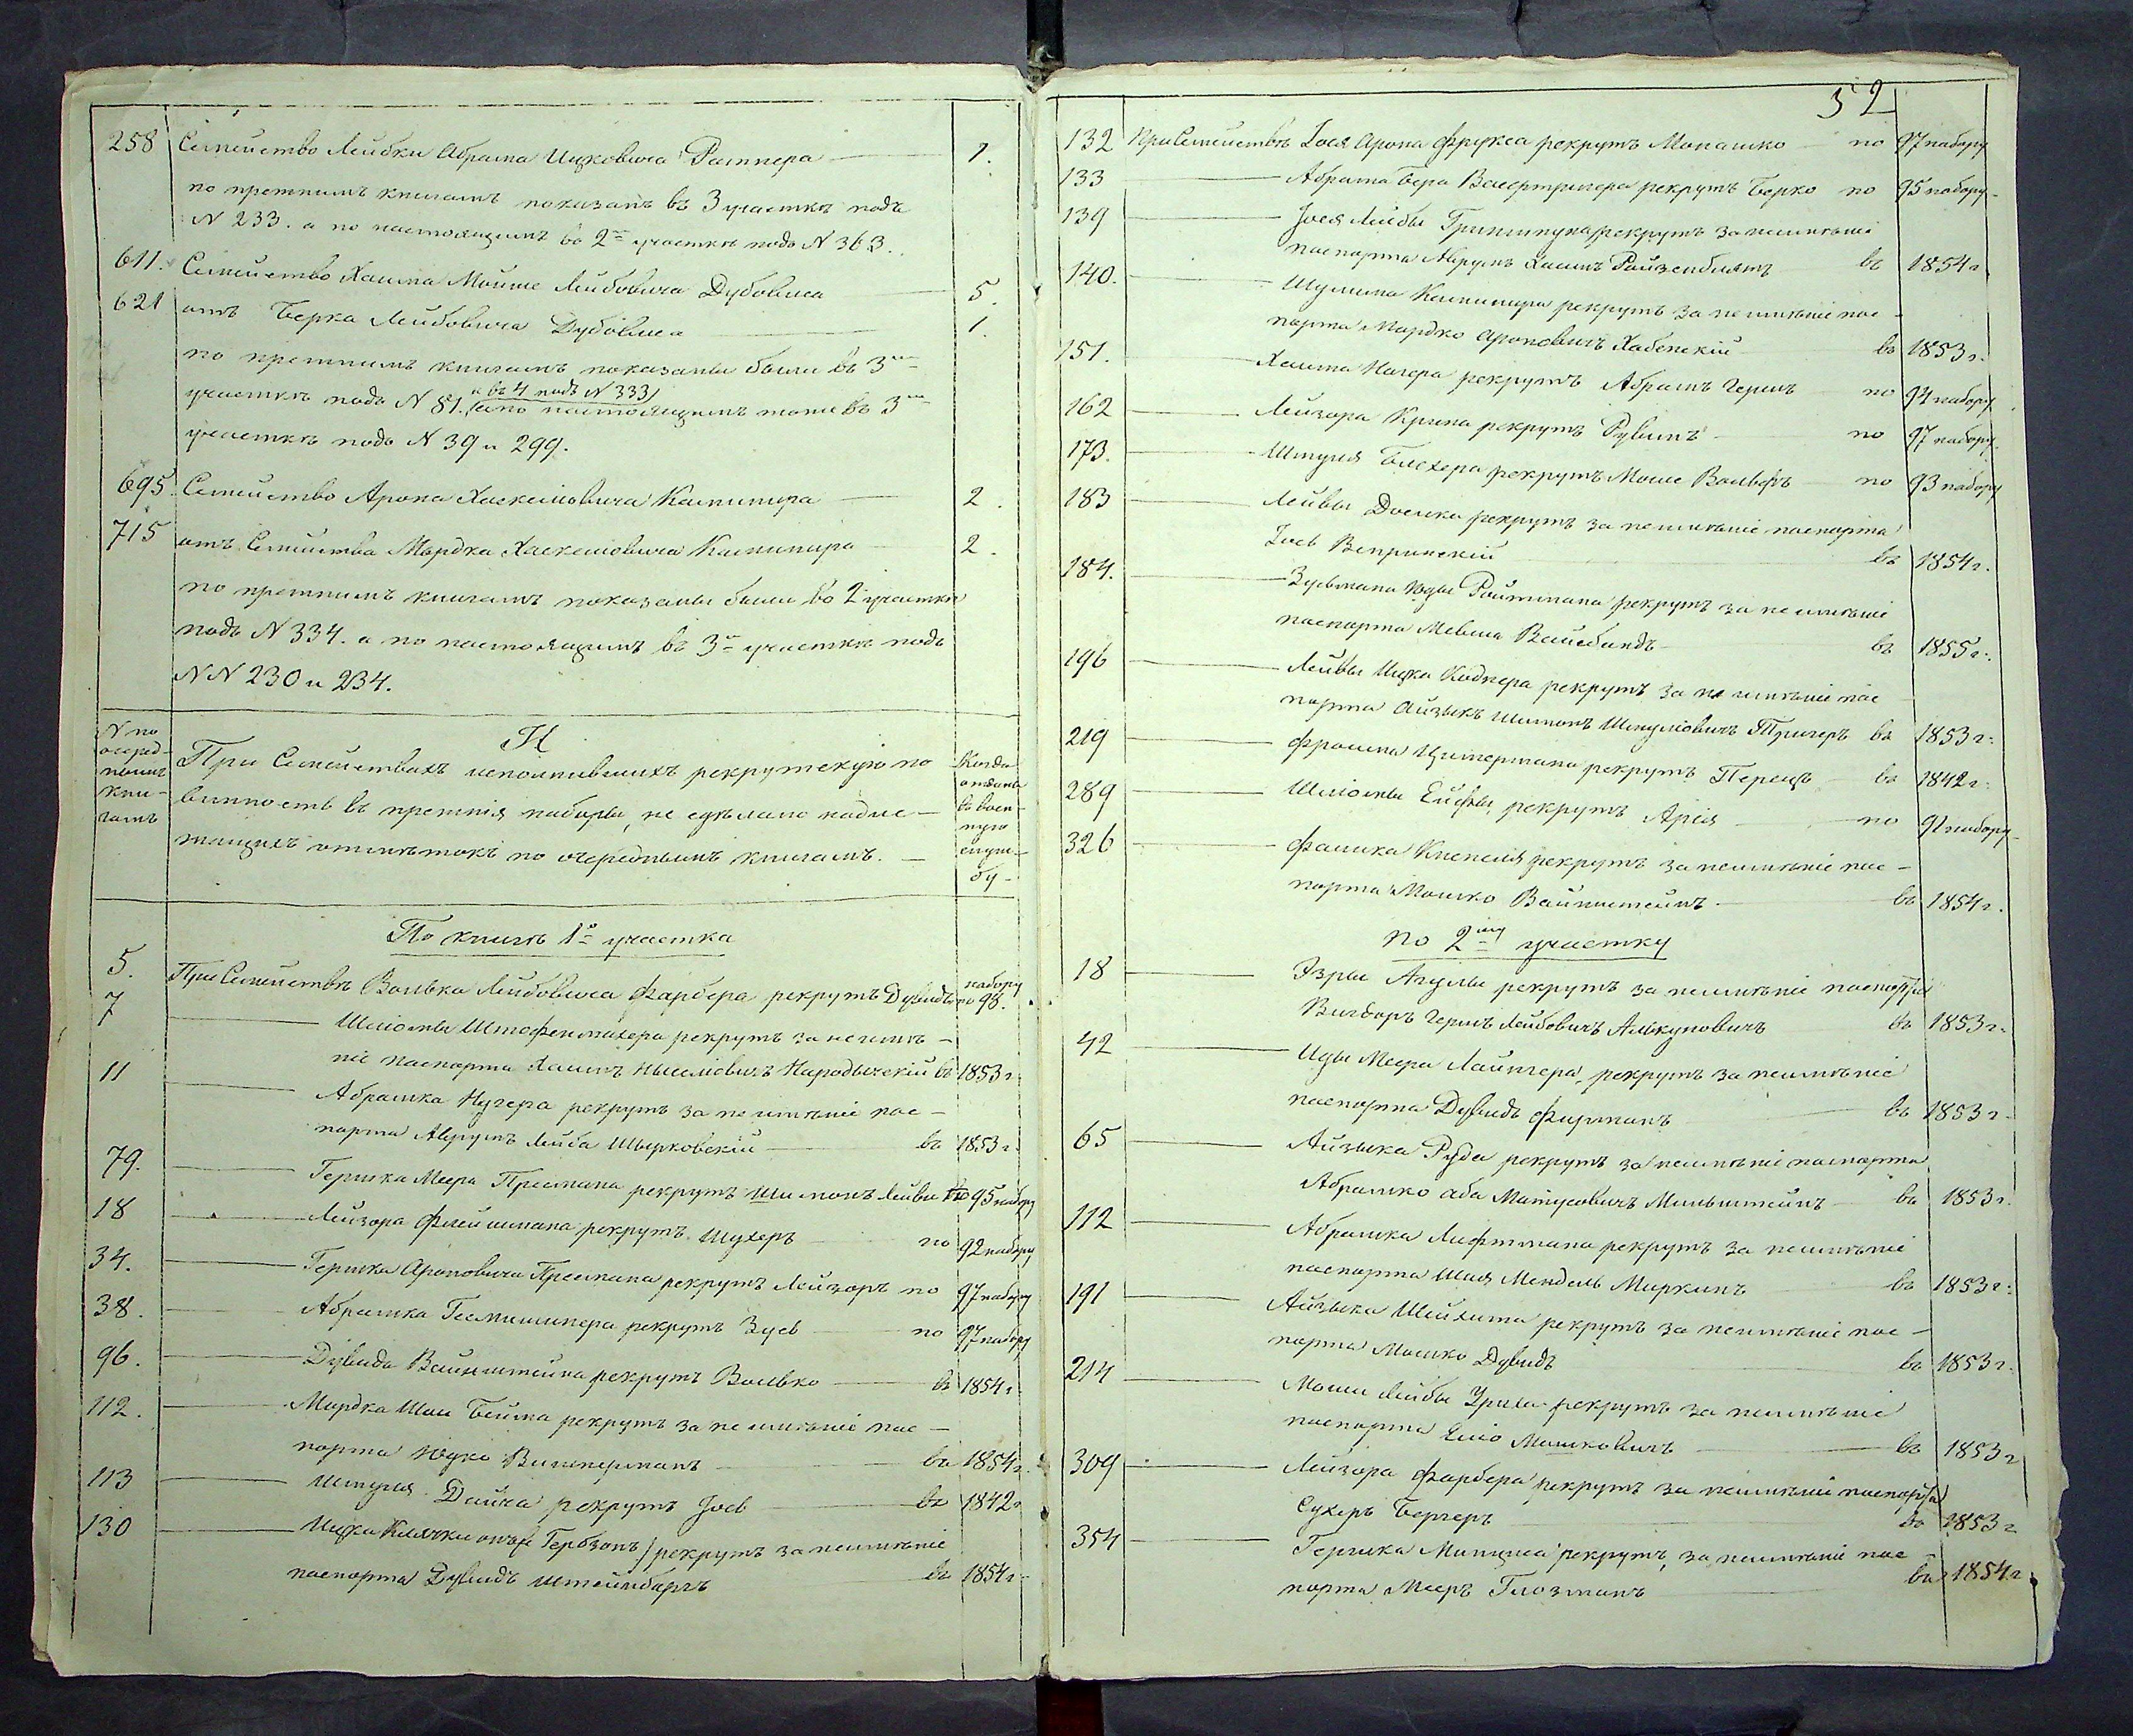 258 Семейство Лейбки Абрама Ицковича Ратнера — 1.
по прежнимъ книгамъ показанъ въ 3 участкѣ подъ
N 233. а по настоящимъ во 2мъ участкѣ подъ N 363.
611. Семейство Хаима Мойше Лейбовича Дубовиса 5.
621 отъ Берка Лейбовича Дубовиса 1.
по прежнимъ книгамъ показаны были въ 3мъ
и въ 4 подъ N 333)
участкѣ подъ N 81. (а по настоящимъ тоже въ 3мъ
участкѣ подъ N 39 и 299.
695. Семейство Арона Хаскелевича Кагининера — 2.
715 отъ Семейства Мордка Хаскелевича 2.
по прежнимъ книгамъ показаны были во 2 участкѣ
подъ N 334. а по настоящимъ въ 3мъ участкѣ подъ
NN 230 и 234.
N по
очеред-
нымъ
кни-
гамъ
При Семействахъ исполнившихъ рекрутскую по-
винность въ прежнія наборы, не сдѣлано надле-
жащихъ отмѣтокъ по очереднымъ книгамъ. —
Когда
отданы
въ воен-
ную
служ-
бу —
По книгѣ 1го участка
5. При Семействѣ Волька Лейбовича Фарбера рекрутъ Дувидъ по 98. набору
7 — Шліомы Штофенмахера рекрутъ за неимѣ-
ніе паспорта Хаимъ Народычскій въ 1853 г.
11 — Абрашка Нугера рекрутъ за неимѣніе пас-
порта Аврумъ Лейба Шварковскій — въ 1853 г.
79. — Гершка Меера Пресмана рекрутъ Шимонъ Лейви по 95 набору
18 — Лейзора Флейшмана рекрутъ Шухеръ по 92 набору
34. — Гершка Ароновича Пресмана рекрутъ Лейзоръ по 97 набору
38. — Абрашка рекрутъ Зусь — по 97 набору
96. — Дувида Вайнштейна рекрутъ Волько — въ 1854 г.
112. — Мордка Шаи Бейма рекрутъ за неимѣніе пас-
порта Юдко — въ 1854 г.
113 — Шмуля Дайча рекрутъ Іось — въ 1842 г.
130 — Ицка Клячки онъ же Гербзонъ) рекрутъ за неимѣніе
паспорта Дувидъ Штейнбергъ въ 1854 г.
52
132 При Семействѣ Іося Арона Фрукса рекрутъ Монашко — по 97 набору
133 — Абрама Бера рекрутъ Берко по 95 набору
139 — Іося Лейбы рекрутъ за неимѣніе
паспорта Аврумъ Хаимъ Райзенблятъ въ 1854 г.
140. — Шулима рекрутъ за неимѣніе пас-
порта Мордко Ароновичъ Хабенскій въ 1853 г.
151. — Хаима Нагера рекрутъ Абрамъ Гершъ — по 94 набору
162 — Лейзора Крика рекрутъ Рувинъ — по 97 набору
173. — Шмуля Блехера рекрутъ Моше Вольфъ — по 93 набору
183 — Лейвы рекрутъ за неимѣніе паспорта
Іось Вепринскій въ 1854 г.
184. — Зусьмана Юды Ройтмана рекрутъ за неимѣніе
паспорта въ 1855 г.
196 — Лейвы Ицка Коднера рекрутъ за неимѣніе пас-
порта Айзыкъ Шимонъ Шмулевичъ Тригеръ въ 1853 г.
219 — Фроима Цимермана рекрутъ Перецъ — въ 1842 г.
289 — Шліомы рекрутъ Арія — по 91 набору
326 — Фалика рекрутъ за неимѣніе пас-
порта Мошко Вайнштейнъ — въ 1854 г.
по 2му участку
18 — Эзры рекрутъ за неимѣніе паспорта
Вигдоръ Гершъ Лейбовичъ въ 1853 г.
42 — Иды Меера рекрутъ за неимѣніе
паспорта Дувидъ Фурманъ въ 1853 г.
65 — Айзыка Руда рекрутъ за неимѣніе паспорта
Абрашко Аба Матусовичъ Мильштейнъ — въ 1853 г.
112 — Абрашка Лифтмана рекрутъ за неимѣніе
паспорта Шая Мендель Миркинъ въ 1853 г.
191 — Айзыка Шейхита рекрутъ за неимѣніе пас-
порта Мошко Дувидъ въ 1853 г.
214 — Мошки Лейбы рекрутъ за неимѣніе
паспорта Еліо Мошковичъ — въ 1853 г.
309 — Лейзора Фарбера рекрутъ за неимѣніе паспорта
Сухеръ Бергеръ въ 1853 г.
354 — Гершка Минциса рекрутъ за неимѣніе пас-
порта Мееръ Глозманъ въ 1854 г.